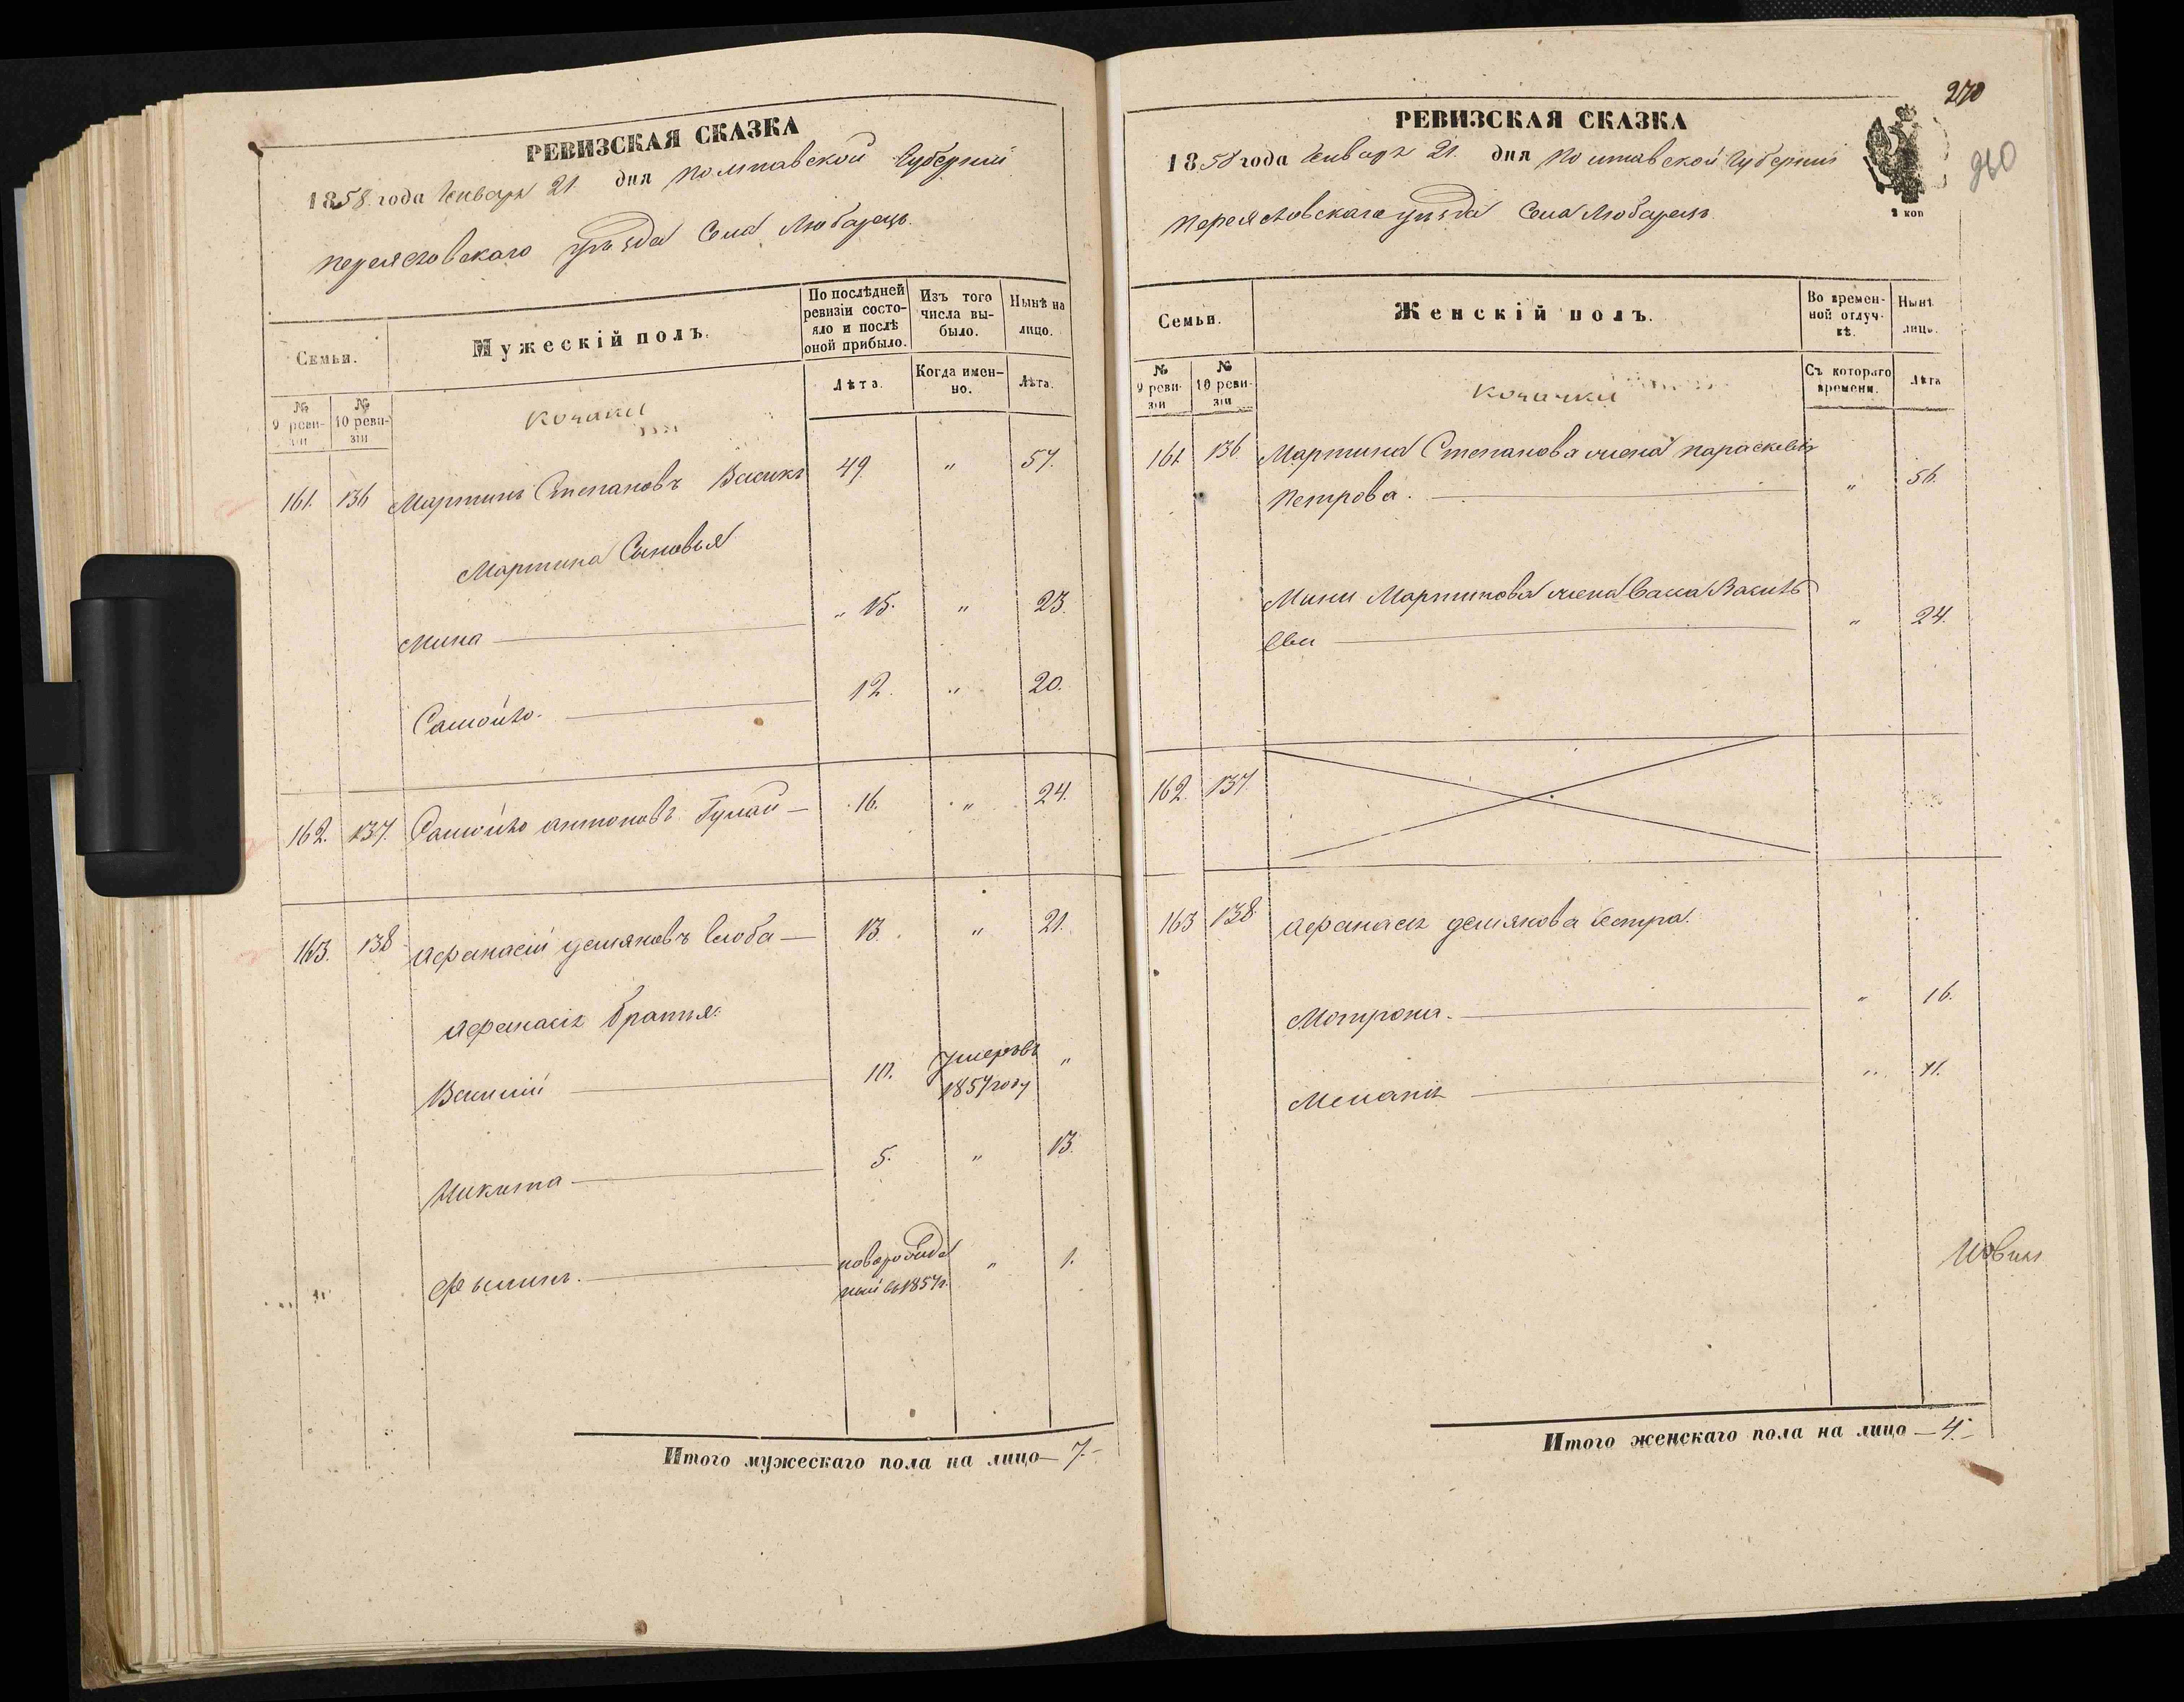 РЕВИЗСКАЯ СКАЗКА
1858 года Января 21 дня Полтавской Губерніи
Переясловскаго уѣзда Села Любарецъ.
Семьи.
Мужескій полъ.
По послѣдней ревизіи состояло и послѣ оной прибыло.
Изъ того числа выбыло.
Нынѣ на лицо.
Лѣта.
Когда именно.
Лѣта.
№ 9 ревизіи
№ 10 ревизіи
козаки
161. 136 Мартинъ Степановъ 49. " 57.
Мартина Сыновья
Мина " 15. " 23.
Самойло. 12. " 20.
162. 137. Самойло Антоновъ 16. " 24.
163. 138 Афанасій Демяновъ 13. " 21.
Афанасія братья:
Василій 10. Умеръ въ 1857 году "
Никита 5. " 13.
Филипъ. новорожденый въ 1857 г. " 1.
Итого мужескаго пола на лицо — 7.-
270
260
РЕВИЗСКАЯ СКАЗКА
1858 года Января 21. дня Полтавской Губерніи
Переясловскаго уѣзда Села Любарецъ
2 коп
Семьи.
Женскій полъ.
Во временной отлучкѣ.
Нынѣ лицо.
№ 9 ревизіи
№ 10 ревизіи
Съ котораго времени.
Лѣта
козачки
161 136 Мартина Степанова жена Параскевія
Петрова. " 56.
Мины Мартинова жена
" 24.
162. 137.
163 138 Афанасія Демянова сестра.
Мотрона. " 16.
Меланія " 11.
Итого женскаго пола на лицо — 4.-